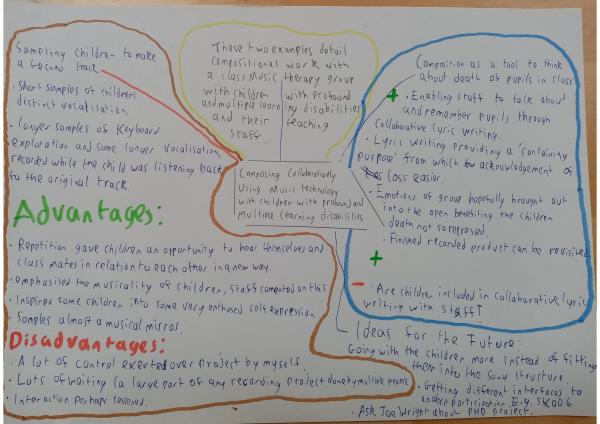 Sampling children to make
a techno track
• Short samples of children's
distinct vocalisation
• Longer samples of keyboard
exploration and some longer vocalisation,
recorded while the child was listening back
to the original track.
Advantages:
• Repetition gave children an opportunity to hear themselves and
class mates in relation to each other in a new way.
• emphasised the musicality of children, staff comented on this
• Inspired some children into some very enthused self expression
Samples almost a musical mirror.
Disadvantages:
• A lot of control exerted over project by myself.
• Lots of waiting (a large part of any recording project done by multiple people
• Interaction perhaps lessened.
These two examples detail
compositional work with
a class music therapy group
with children with profound
and multiple learning disabilities
and their teaching
staff.
Composing Collaboratively
Using Music technology
with children with profound and
Multiple learning disabilities
Composition as a tool to think
about death of pupils in class
+ • Enabling staff to talk about
and remember pupils through
collaborative lyric writing.
• Lyric writing providing a 'containing
purpose' from which to acknowledgement of
loss easier.
• Emotions of group hopefully brought out
into the open benefiting the children
death not so repressed.
• Finished recorded product can be revisited
+
- • Are children included in collaborative lyric
writing with staff?
Ideas for the Future:
Going with the children more instead of fitting
them into the song structure.
• Getting different interfaces to
enable participation E.g. SKOOG
• Ask Joe Wright about PHD project.